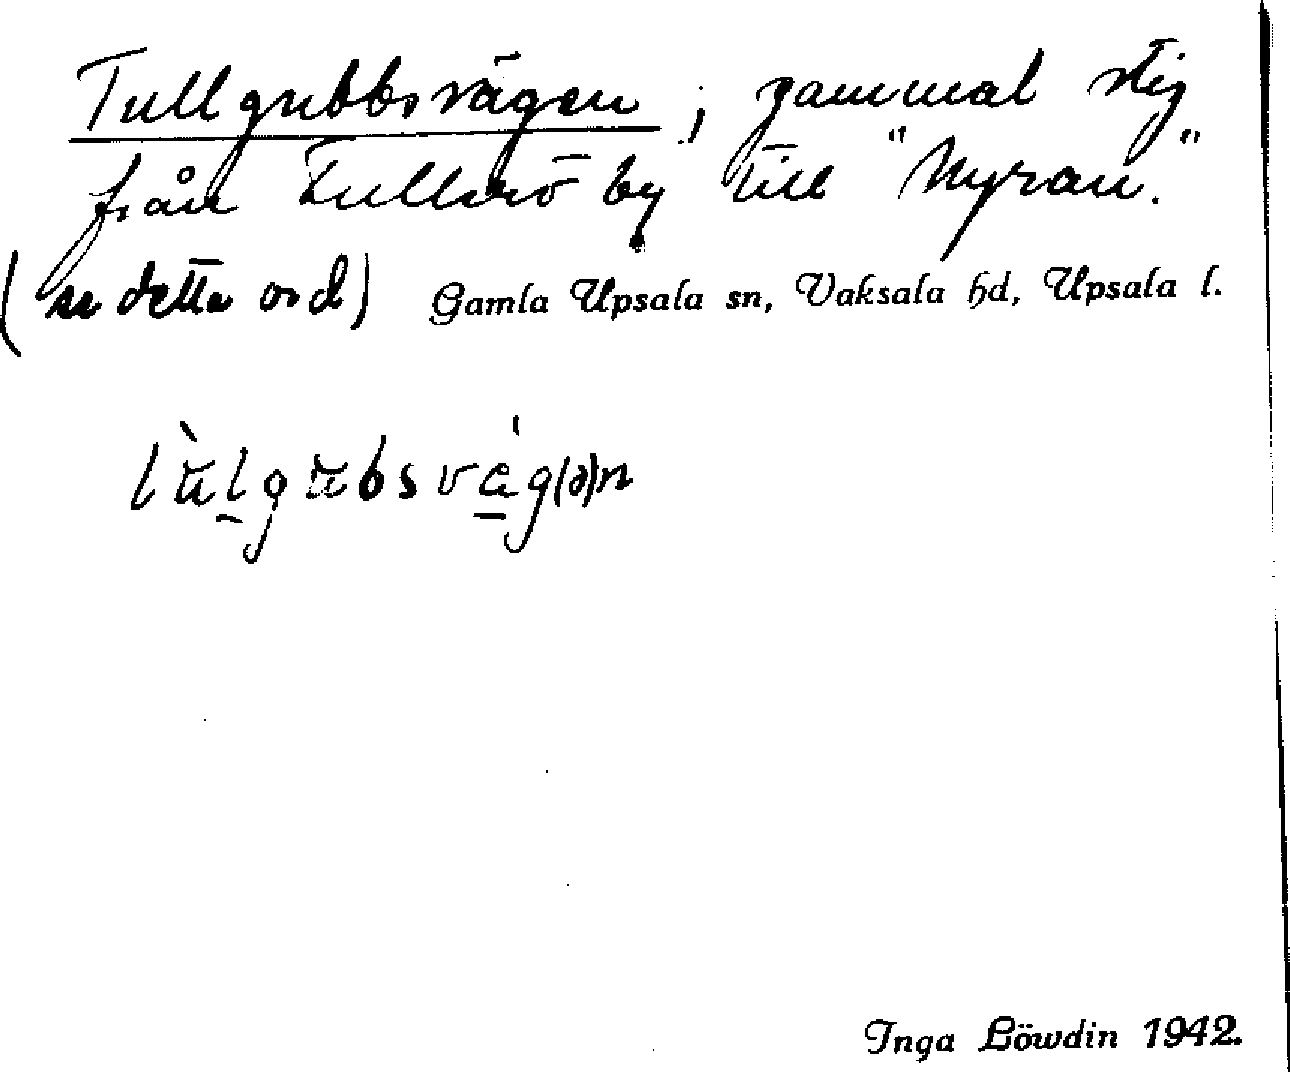 Tullgubbsvägen, gammal stig
från Tullmö by till "Myran."
(se detta ord) Gamla Upsala sn, Vaksala hd, Upsala l.
Inga Löwdin 1942.